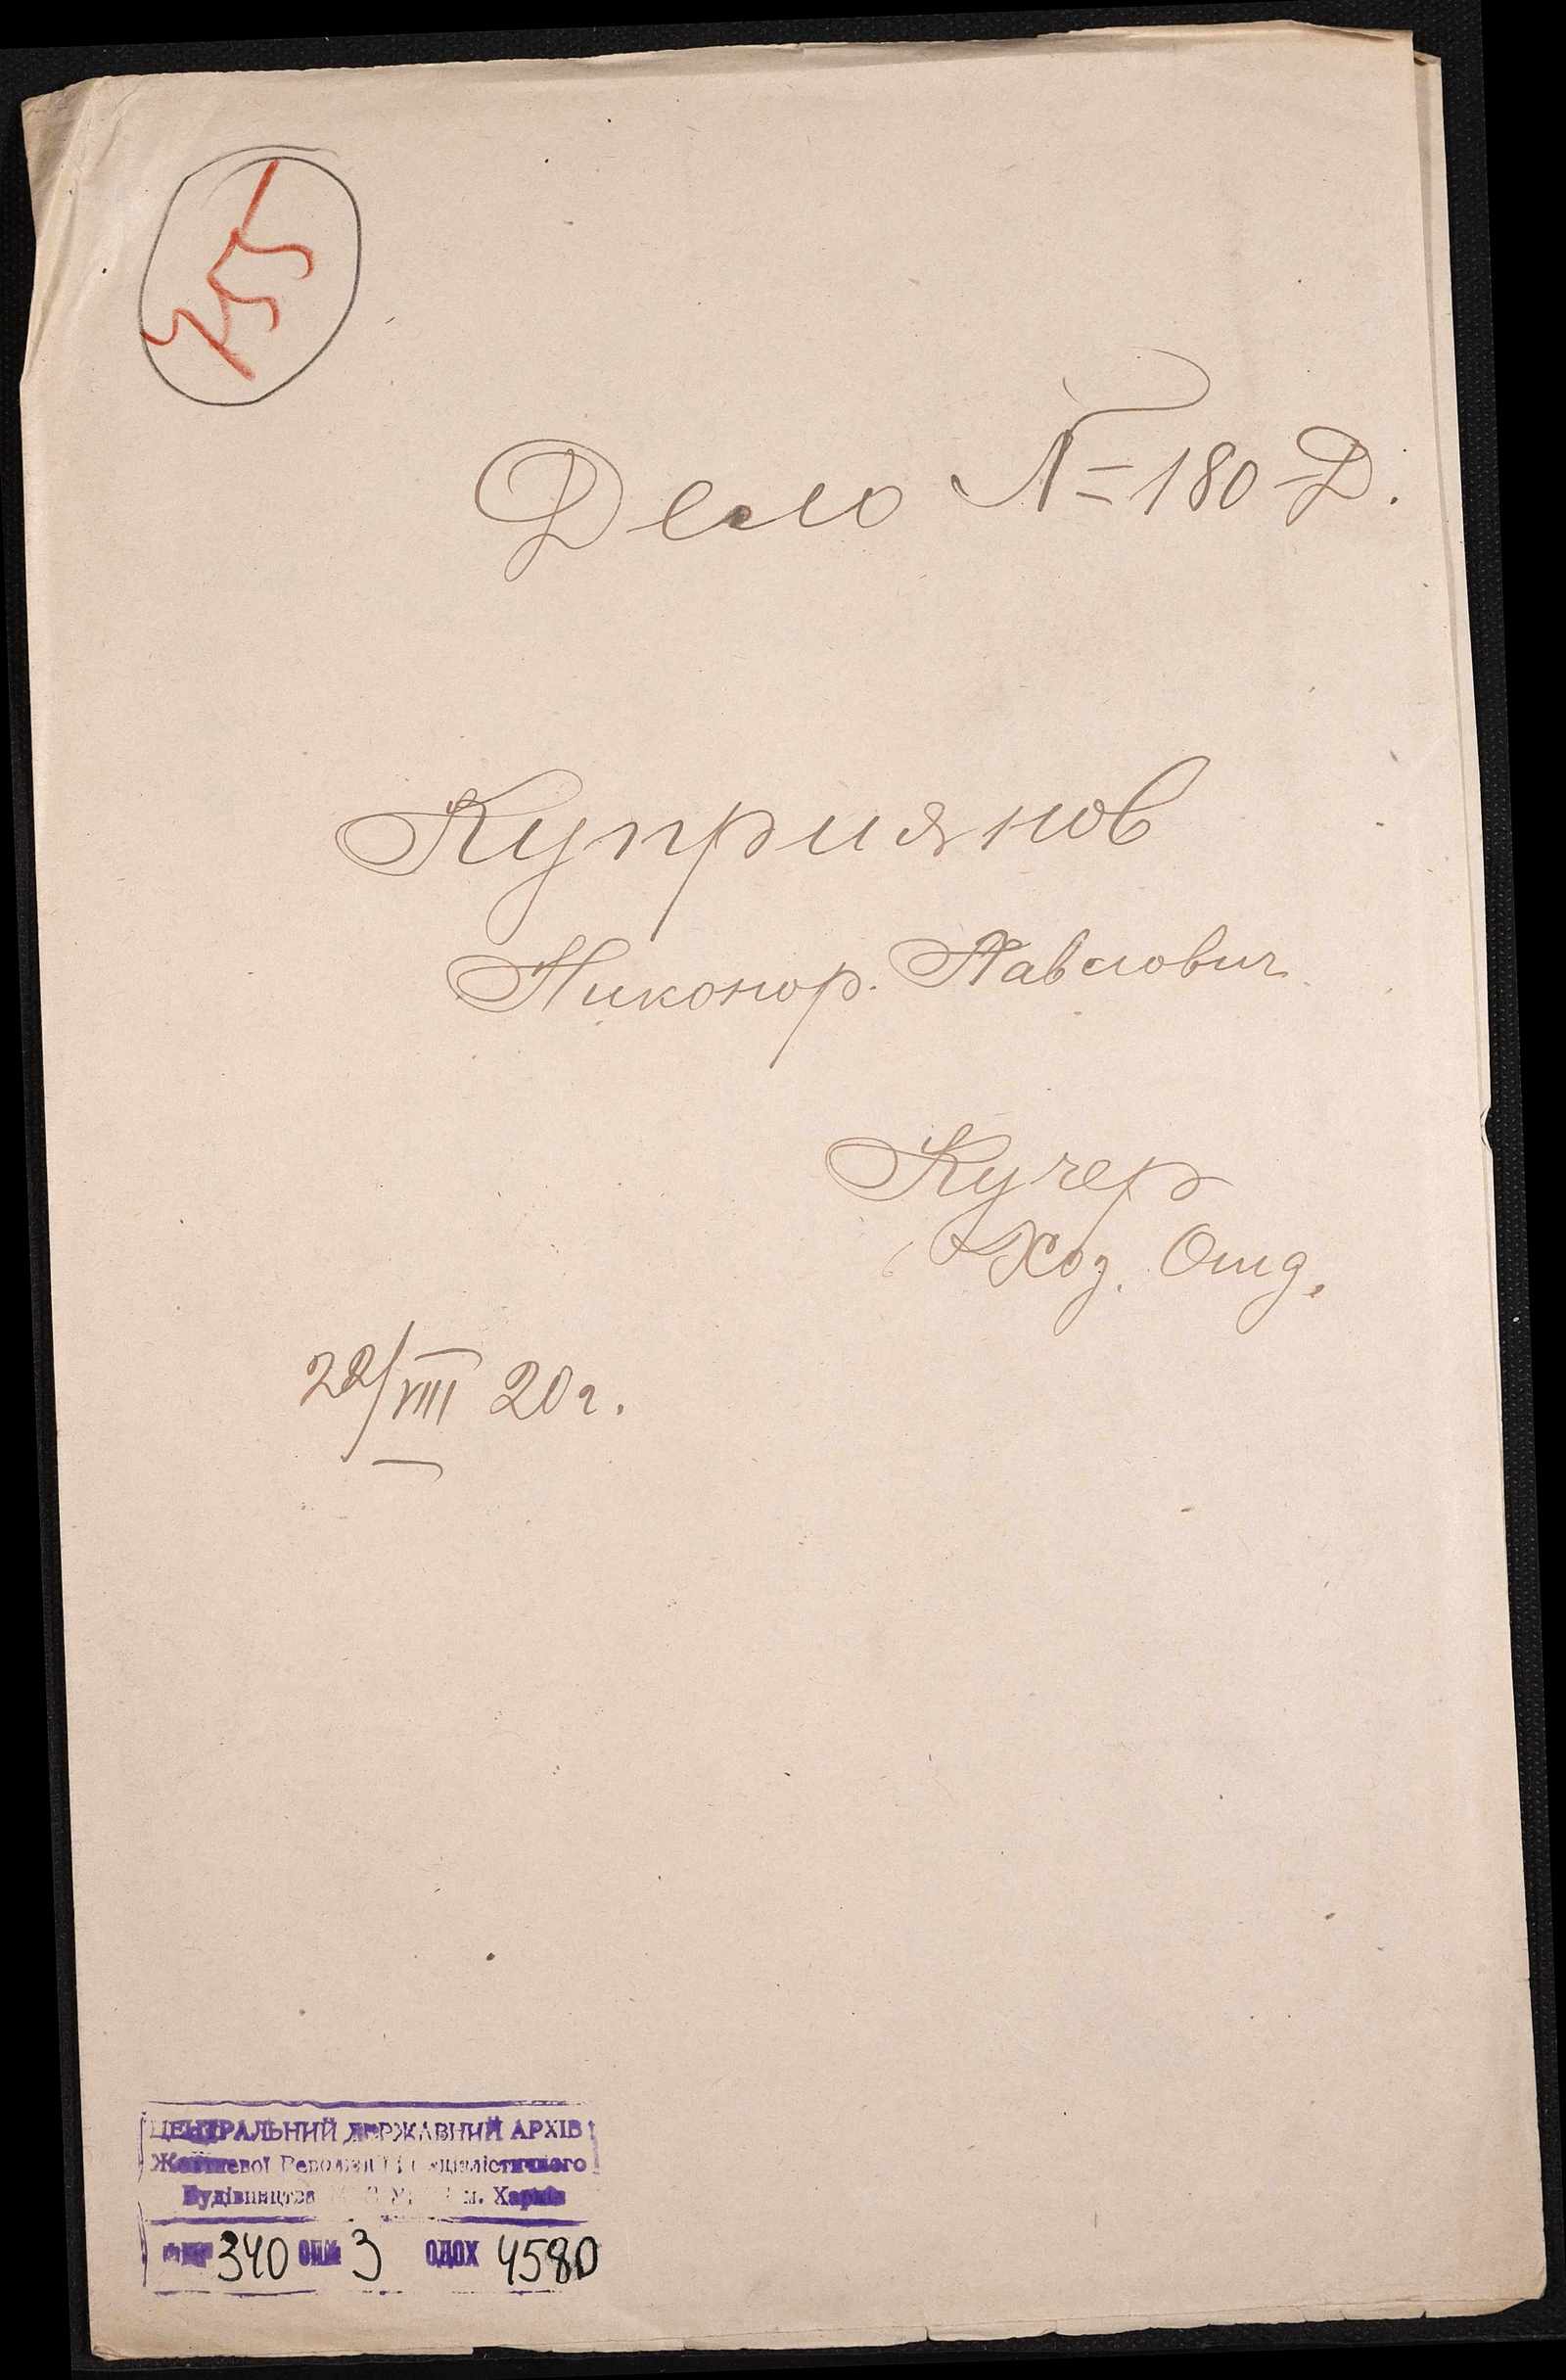 355
Дело № 180-Д.
Куприянов
Никонор. Павлович
Кучер
Хоз. Отд.
22/VIII 20 г.
ЦЕНТРАЛЬНИЙ ДЕРЖАВНИЙ АРХІВ
Жовтневої Революції і соціалістичного
Будівництва м. Харків
340 ОП№ 3 ОДОХ 4580